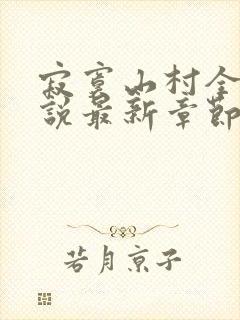 寂寞山村全
說最新章節
若月京子